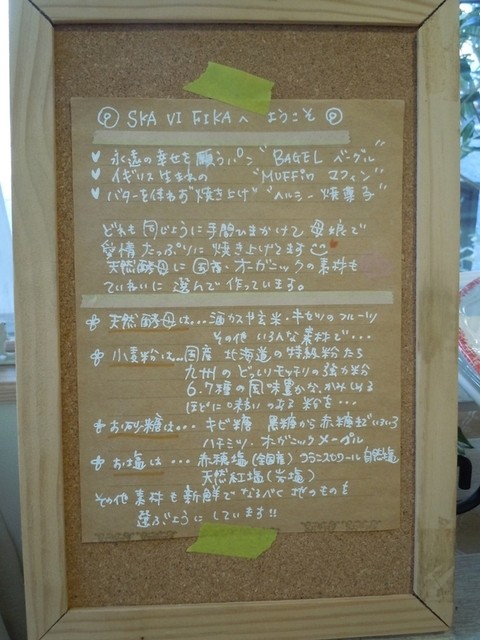 SKA VI FIKAへ ようこそ
♥ 永遠の幸せを願うパン "BAGEL ベーグル"
♥ イギリス生まれの "MUFFin マフィン"
♥ バターを使わず"焼き上げ" "ヘルシー焼菓子"
どれも同じように手間ひまかけて 母娘で
愛情たっぷりに焼き上げてます
天然酵母に国産・オーガニックの素材も
ていねいに選んで作っています。
天然酵母は…酒カスや玄米・キセツのフルーツ
その他 いろんな素材で…
小麦粉は…国産 北海道の特級粉たち
九州のどっしりモッチリの強力粉
6.7種の風味豊かな、かみしめる
ほどに味わいのある粉を…
お砂糖は… キビ糖 黒糖から赤糖まで いろいろ
ハチミツ・オーガニックメープル
お塩は… 赤穂塩(全国産) 自然塩
天然紅塩(岩塩)
その他 素材も新鮮でなるべく地のものを
選ぶようにしています!!